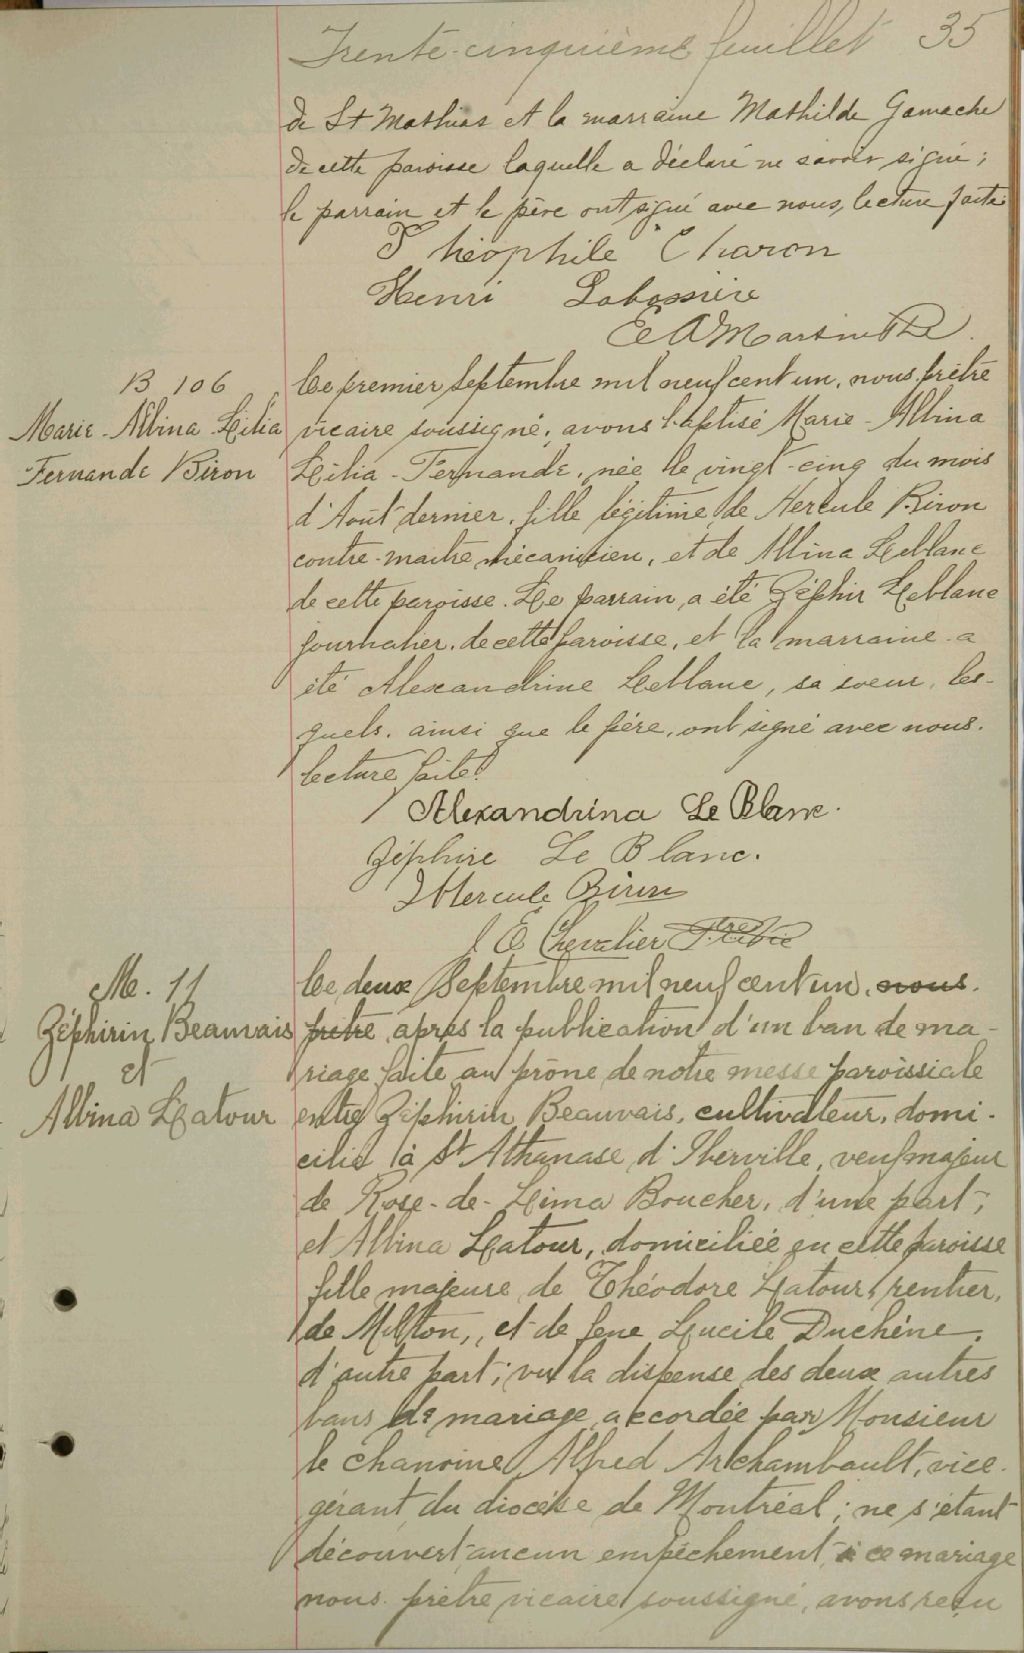 Trente-cinquième feuillet 35
de St Mathias et la marraine Mathilde Gamache
de cette paroisse laquelle a déclaré ne savoir signer ;
le parrain et le père ont signé avec nous, lecture faite.
Théophile Charon
Henri Labossière
E A Martin Ptre
B 106
Marie-Albina-Lilia
Fernande Biron
Ce premier Septembre mil neuf cent un, nous prêtre
vicaire soussigné, avons baptisé Marie-Albina
Lilia-Fernande, née le vingt-cinq du mois
d'Août dernier, fille légitime de Hercule Biron
contre-maître mécanicien, et de Albina Leblanc
de cette paroisse. Le parrain a été Zéphir Leblanc
journalier, de cette paroisse, et la marraine a
été Alexandrine Leblanc, sa soeur, les-
quels, ainsi que le père, ont signé avec nous.
lecture faite.
Alexandrina Le Blanc.
Zéphire Le Blanc.
Hercule Biron
J E Chevalier Ptre Vic
M. 11
Zéphirin Beauvais
et
Albina Latour
Ce deux Septembre mil neuf cent un, nous
prêtre après la publication d'un ban de ma-
riage faite au prône de notre messe paroissiale
entre Zéphirin Beauvais, cultivateur, domi-
cilié à St Athanase d'Iberville, veuf majeur
de Rose-de-Lima Boucher, d'une part ;
et Albina Latour, domiciliée en cette paroisse
fille majeure de Théodore Latour, rentier,
de Milton, et de feue Lucile Duchêne,
d'autre part ; vu la dispense des deux autres
bans de mariage accordée par Monsieur
le chanoine Alfred Archambault, vice-
gérant du diocèse de Montréal ; ne s'étant
découvert aucun empêchement à ce mariage
nous prêtre vicaire soussigné, avons reçu